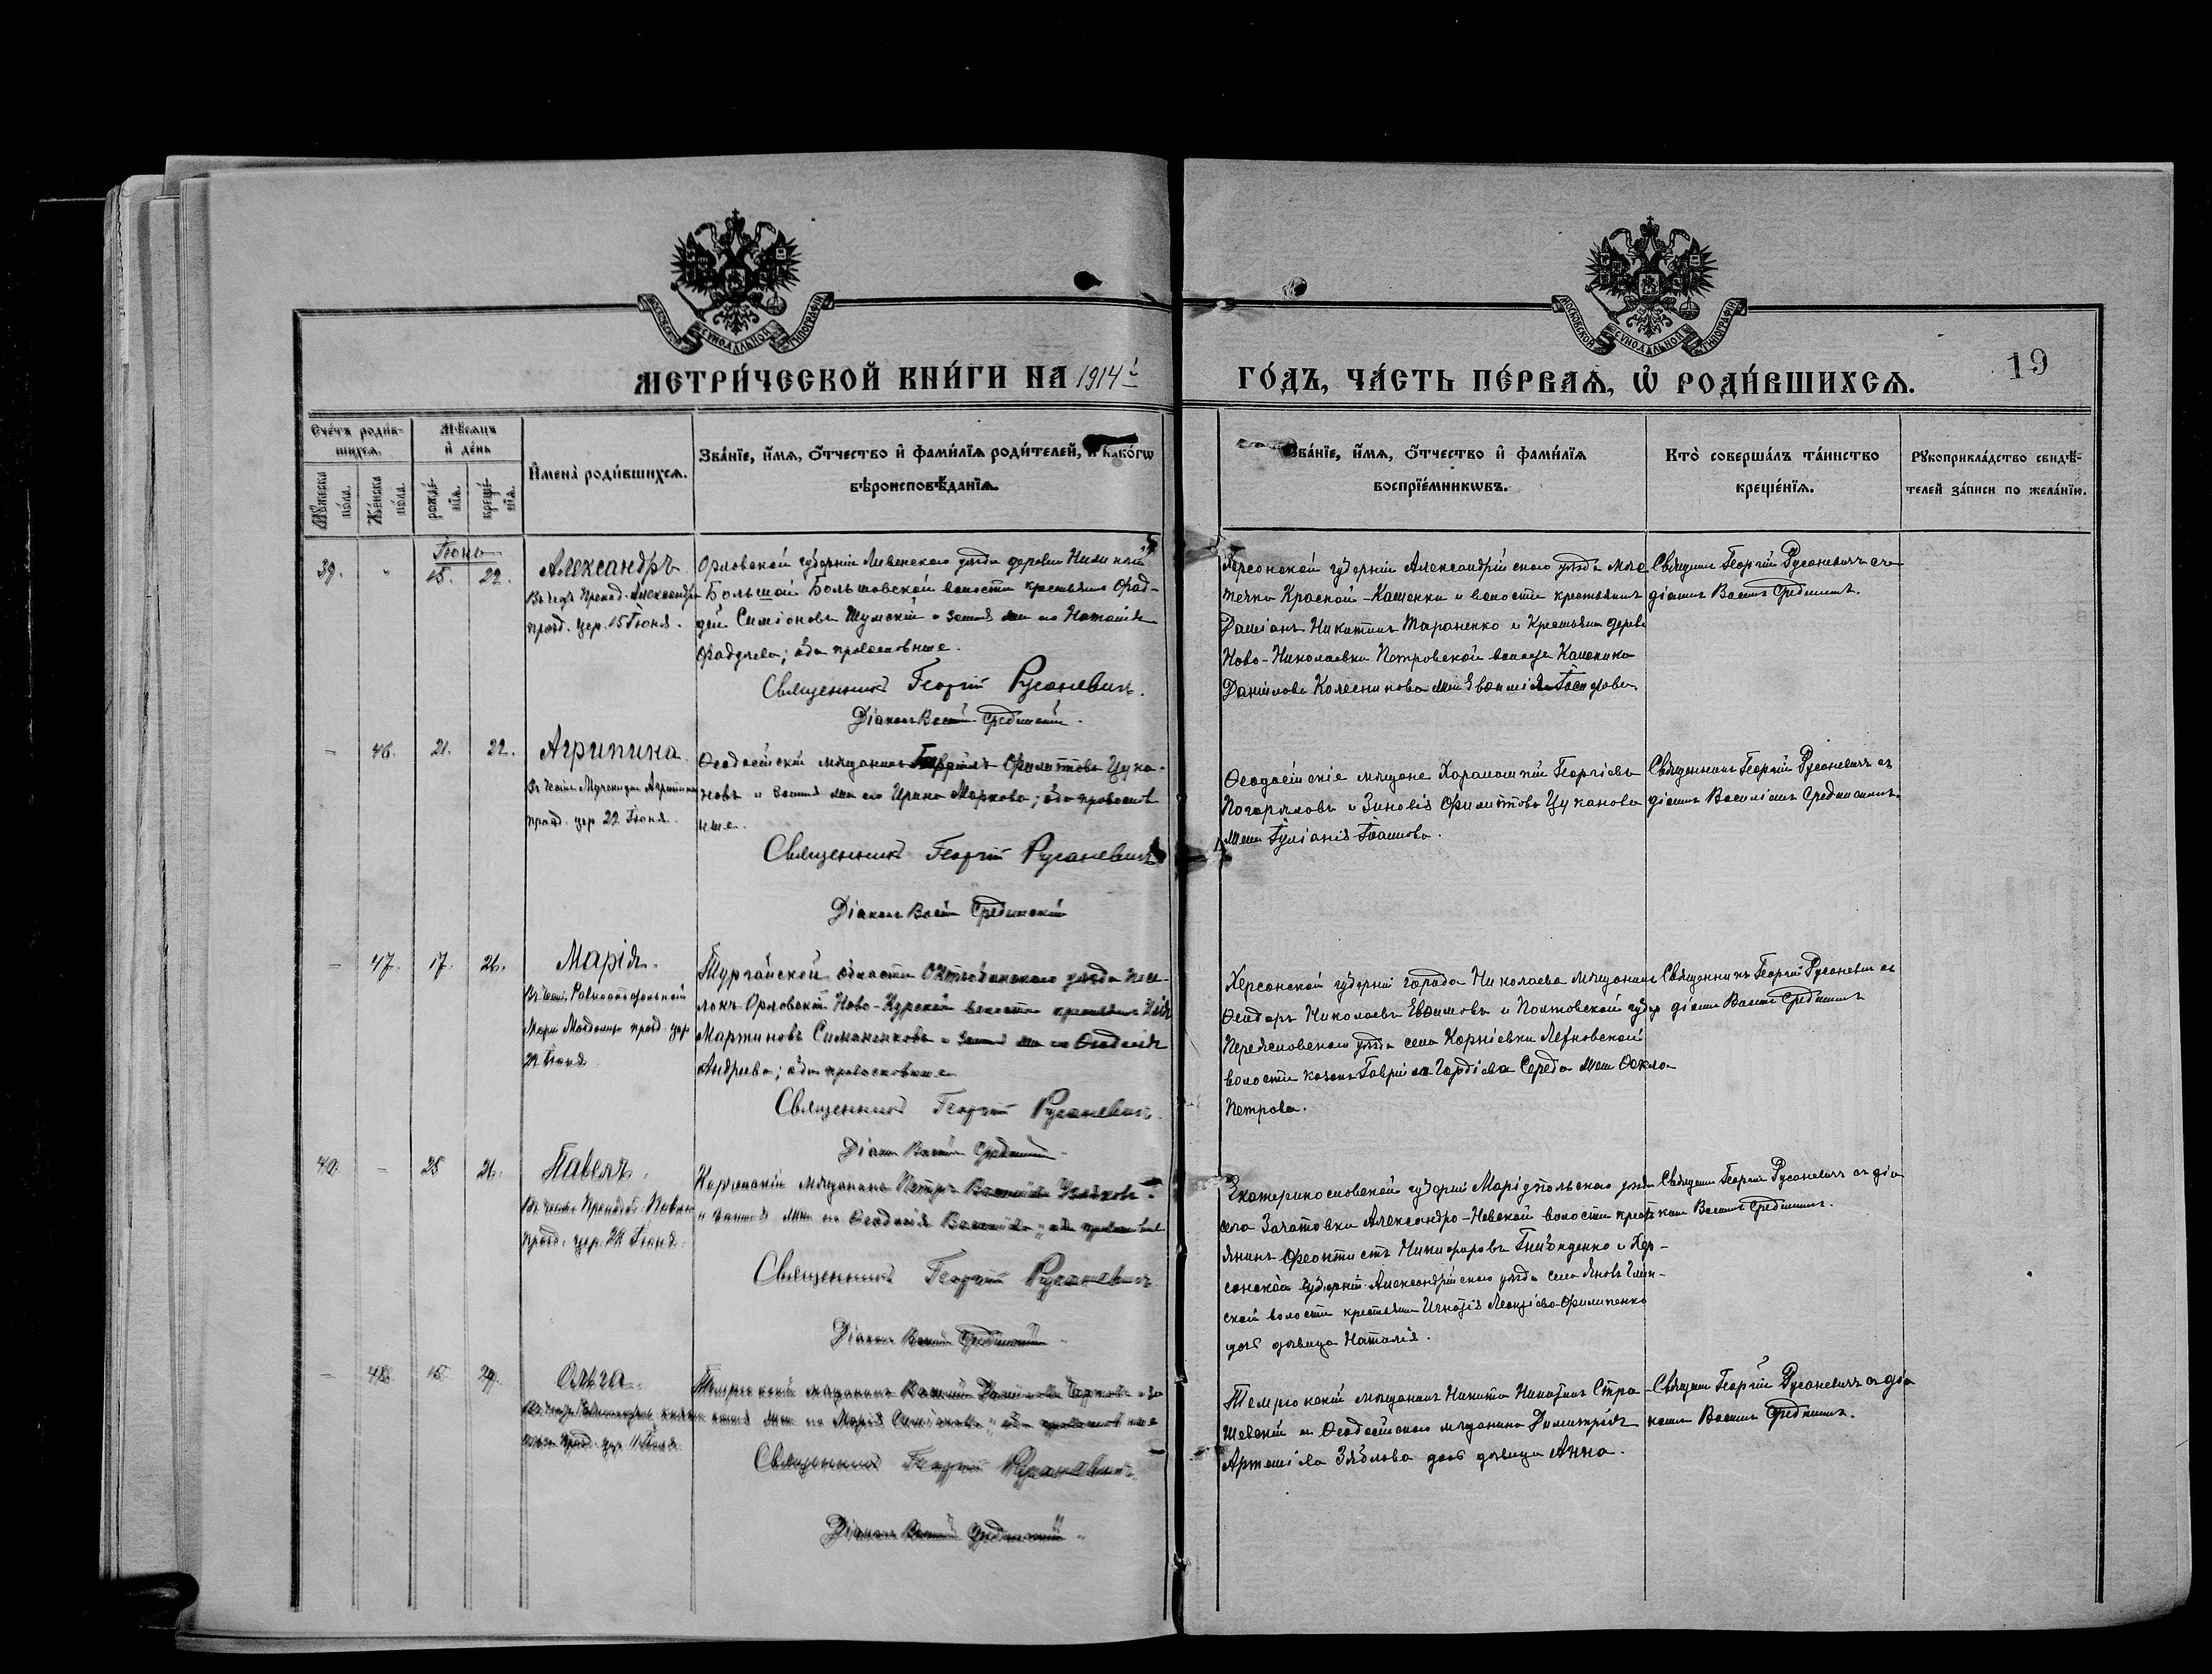 МОСКОВСКОЙ СУНОДАЛЬНОЙ ТИПОГРАФІИ
МОСКОВСКОЙ СУНОДАЛЬНОЙ ТИПОГРАФІИ
МЕТРИ́ЧЕСКОЙ КНИ́ГИ НА 1914й
ГО́ДЪ, ЧА́СТЬ ПЕ́РВАѦ, Ѡ РОДИ́ВШИХСѦ.
19
Сче́тъ роди́в-
шихсѧ.
Мꙋ́жеска по́ла.
Же́нска по́ла.
Мѣ́сѧцъ
и де́нь
рожде́-нїѧ.
креще́-нїѧ.
И҆мена̀ роди́вшихсѧ.
Зва́нїе, и҆́мѧ, ѻ҆́тчество и҆ фами́лїѧ роди́телей, и҆ како́гѡ
вѣроисповѣ́данїѧ.
Зва́нїе, и҆́мѧ, ѻ҆́тчество и҆ фами́лїѧ
воспрїе́мникѡвъ.
Кто̀ соверша́лъ та́инство
креще́нїѧ.
Рꙋкоприкла́дство свидѣ́-
телей за́писи по жела́нїю.
Іюнь
39.
15.
22.
Александръ
Въ честь Препод. Александра
празд. цер. 15 Іюня.
Орловской губерніи Ливенскаго уѣзда деревни
Большой Большовской волости крестьянинъ Фад-
дей Симіоновъ Шумскій и законная жена его Наталія
Фаддеева; оба православные.
Священникъ Георгій Русаневичъ.
Діаконъ Василій Срединскій.
Херсонской губерніи Александрійскаго уѣзда мѣс
течка Красной-Каменки и волости крестьянинъ
Даміанъ Никитинъ Тараненко и крестьян дерев
Ново-Николаевки Петровской волости
Даніилова Колесникова жена Евѳимія Іосифова.
Священникъ Георгій Русаневичъ съ
діакономъ Васил Срединскимъ.
46.
21.
22.
Агрипина
Въ честь Мученицы Агрипины
празд. цер. 22 Іюня.
Ѳеодосійскій мѣщанинъ Гавріилъ Филипповъ Цука-
новъ и законная жена его Ирина Маркова; оба православ
ные.
Священникъ Георгій Русаневичъ
Діаконъ Василій Срединскій
Ѳеодосійскіе мѣщане Харалампій Георгіевъ
Погорѣловъ и Зиновія Филиппова Цуканова
жена Іуліанія Іоаннова.
Священникъ Георгій Русаневичъ съ
діакономъ Василіемъ Срединскимъ.
47.
17.
26.
Марія.
Въ честь Равноапостольной
Маріи Магдалины празд. цер.
22 Іюля
Тургайской области Актюбинскаго уѣзда посе-
локъ Орловскій Ново-Курской волости крестьянинъ
Мартиновъ Симоненковъ и законная жена его Ѳеодосія
Андреева; оба православные
Священникъ Георгій Русаневичъ.
Діаконъ Василій Срединскій
Херсонской губерніи города Николаева мѣщанинъ
Ѳеодоръ Николаевъ Евѳимовъ и Полтовской губер
Переяславскаго уѣзда села Корніевки
волости козака Гавріила Гордіева Середа жена Ѳекла
Петрова.
Священникъ Георгій Русаневичъ съ
діакономъ Васил Срединскимъ
40.
25
26.
Павелъ.
празд. цер. 29 Іюня.
Керченскій мѣщанинъ Петръ Васильевъ
и законная жена его Ѳеодосія Васильева; оба православные
Священникъ Георгій Русаневичъ
Діаконъ Василій Срединскій
Екатеринославской губерніи Маріупольскаго уѣзда
села Зачатовки Александро-Невской волости кресть
янинъ Феоктистъ Никифоровъ Гниденко и Хер-
сонской губерніи Александрійскаго уѣзда села
ской волости крестьянина Игнатія Леонтіева Филипенко
дочь дѣвица Наталія.
Священникъ Георгій Русаневичъ съ діа
кономъ Васил Срединскимъ.
48.
15.
29.
Ольга.
празд. цер. 11 Іюля
Темрюкскій мѣщанинъ Василій Даніиловъ
Марія Симіонова; оба православные
Священникъ Георгій Русаневичъ
Діаконъ Василій Срединскій
Темрюкскій мѣщанинъ Никита Никитинъ Стра-
шевскій и Ѳеодосійскаго мѣщанина Димитрія
Артеміева Зяблова дочь дѣвица Анна.
Священникъ Георгій Русаневичъ съ діа
кономъ Васил Срединскимъ.